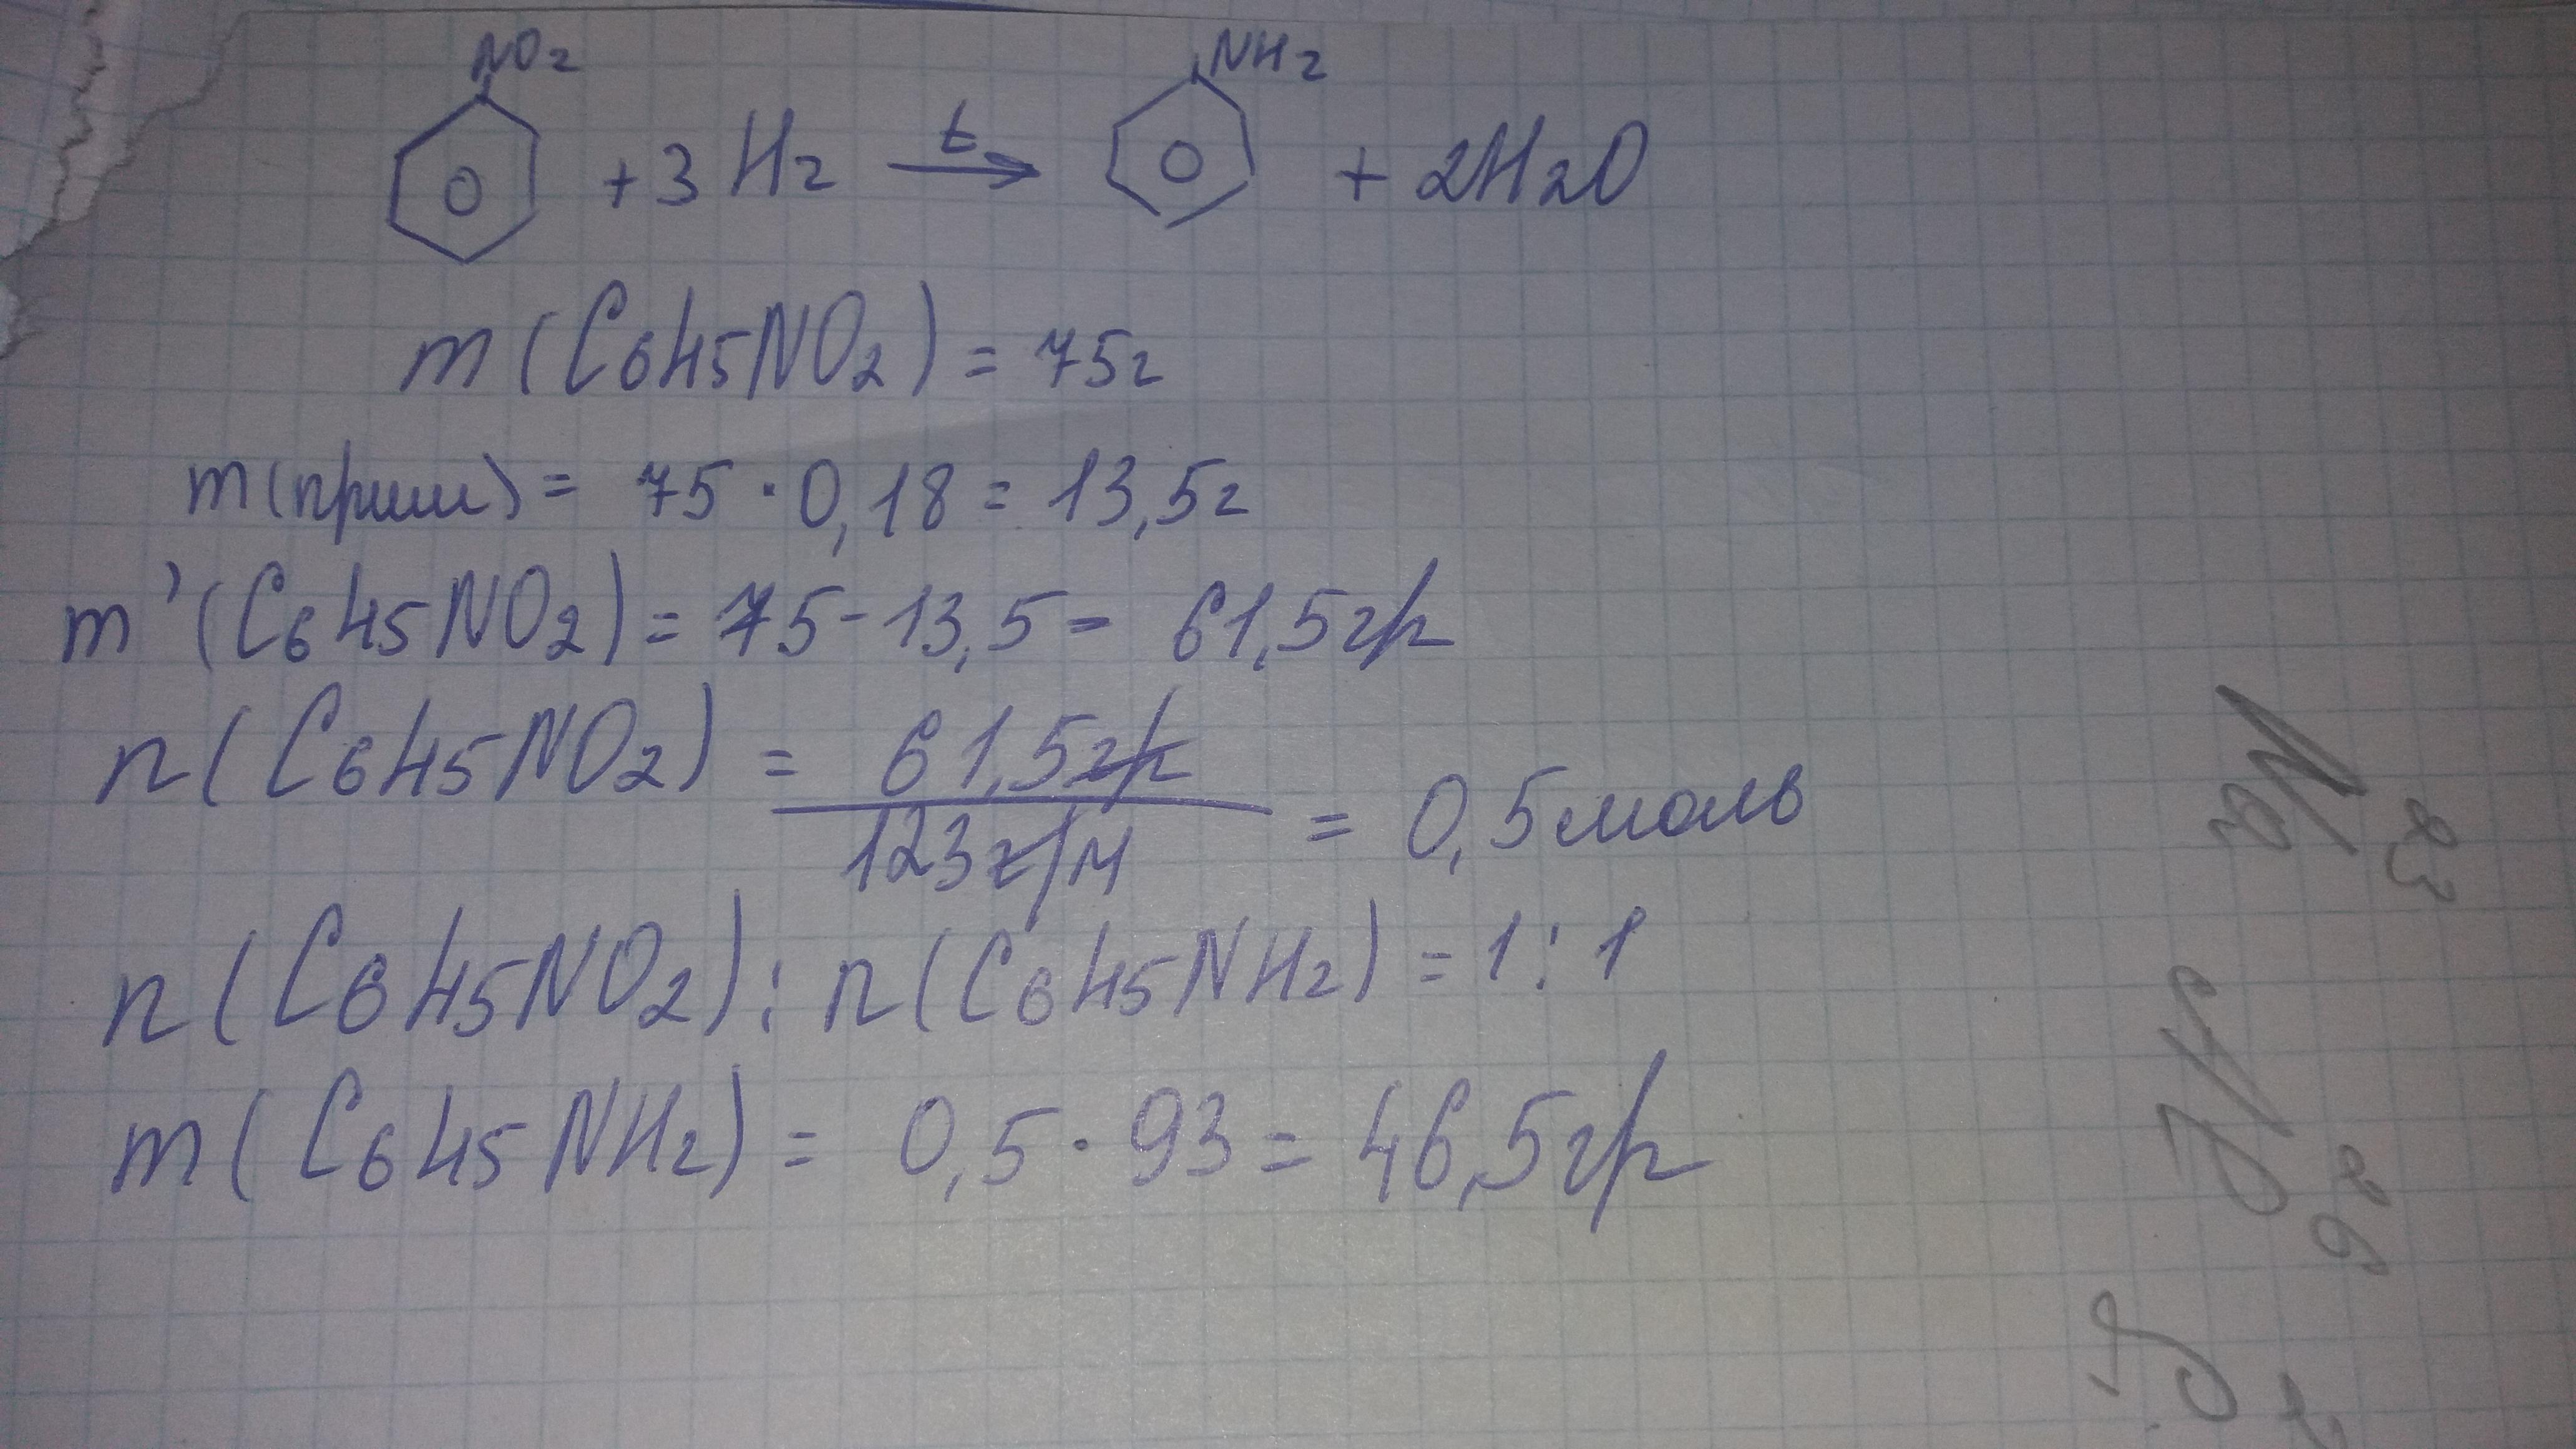 NO2 NH2
+ 3H2 t→ + 2H2O
m(C6H5NO2) = 75г
m(прим) = 75 · 0,18 = 13,5г
m'(C6H5NO2) = 75 - 13,5 = 61,5гр
n(C6H5NO2) = 61,5гр / 123г/м = 0,5моль
n(C6H5NO2) : n(C6H5NH2) = 1 : 1
m(C6H5NH2) = 0,5 · 93 = 46,5гр
Na 23